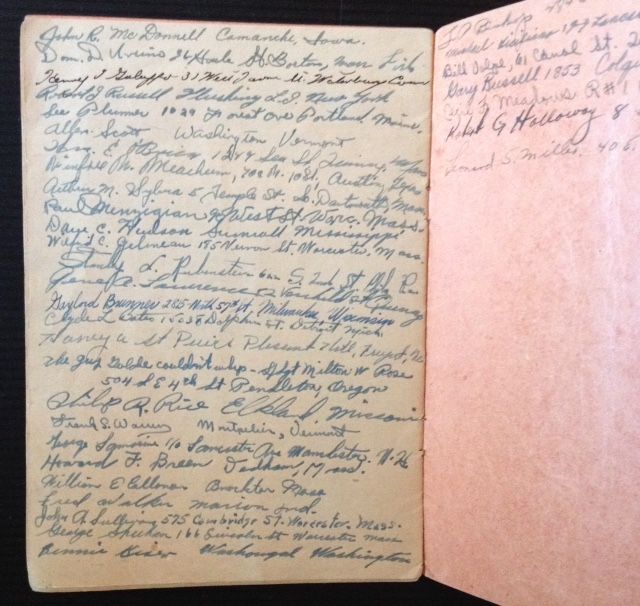 John R. McDonnell Comanche, Iowa.
Dom. D Urbino 26 Hale St Boston, Mass
Henry J 31 West Farm St. Waterbury Conn
Robert J Russell Flushing L.I. New York
Lee Plumer 1029 Forest Ave Portland, Maine.
Allen Scott Washington Vermont
E. O'Brien 1244 Sea St. Quincy, Mass
Winfred M. Meachum, 702 W. 10th, Austin, Texas
Arthur M. Sylvia 5 Temple St. So. Dartmouth, Mass
Paul Menzigian 92 West St. Ware, Mass.
Dave C. Hudson Sumrall Mississippi
C. Gelineau 185 Vernon St. Worcester, Mass.
Stanley L. Rubinstein S. 2nd St. Pa
Gene A. Lawrence 52 St Quincy
Gaylord Brunner 2825 North 57th St, Milwaukee, Wisconsin
Clyde L Bates 15038 Dolphin St. Detroit Mich.
Harvey A St Pierre Pleasant Hill, Freeport, Me
The guy Goldie couldn't whip - S/Sgt Milton W Rose
504 S E 4th St Pendleton, Oregon
Philip R. Rice Elkland, Missouri
Frank S. Warren Montpelier, Vermont
George Lamoine 110 Lancaster Ave Manchester. N.H.
Howard F. Breen Dedham, Mass.
William E Brockton Mass
Fred Walker Marion Ind.
John A Sullivan 575 Cambridge St. Worcester. Mass.
George 166 Lincoln St Worcester Mass
Bennie Kiser Washougal Washington
J. J. Bishop
197
Bill 61 Canal St.
Gary Russell 1853
Meadows R#1
Robert G Holloway 8
Leonard S. Miller 406